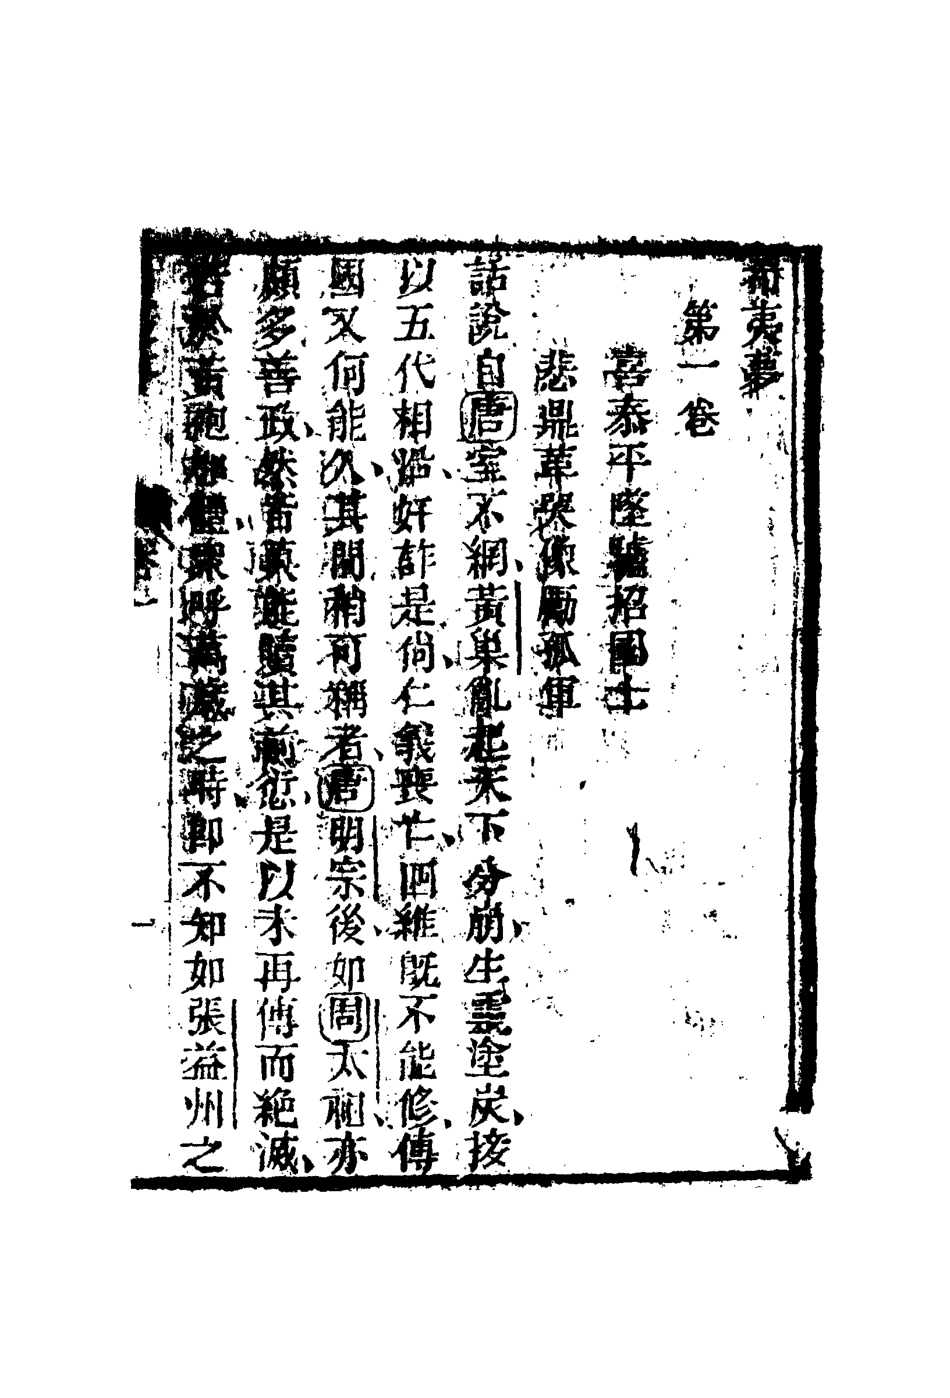 希夷夢
第一卷
喜泰平墜驢招國士
悲鼎革哭像勵孤軍
話說自唐室不綱黃巢亂起天下分崩生靈塗炭接
以五代相沿奸詐是尚仁義喪亡四維既不能修傳
國又何能久其間稍可稱者唐明宗後如周太祖亦
頗多善政然皆莫能贖其前愆是以未再傳而絶滅
於黃袍衆呼萬歲之時卽不知如張益州之
卷一
一